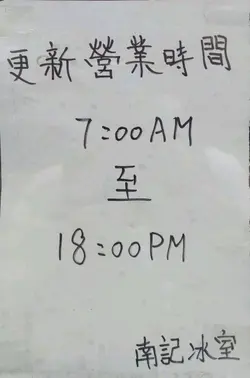 更新營業時間
7:00AM
至
18:00PM
南記冰室